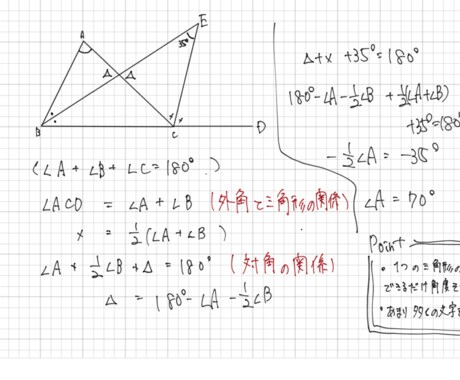 A
E
35°
Δ Δ
B
C
D
(∠A + ∠B + ∠C = 180°.)
∠ACD = ∠A + ∠B (外角と三角形の関係)
× = ½(∠A + ∠B)
∠A + ½∠B + Δ = 180° (対角の関係)
Δ = 180° - ∠A - ½∠B
Δ + × + 35° = 180°
180° - ∠A - ½∠B + ½(∠A + ∠B)
+ 35° = 180
- ½∠A = - 35°
∠A = 70°
Point
・1つの三角形の
できるだけ角度を
・あまり多くの文字を